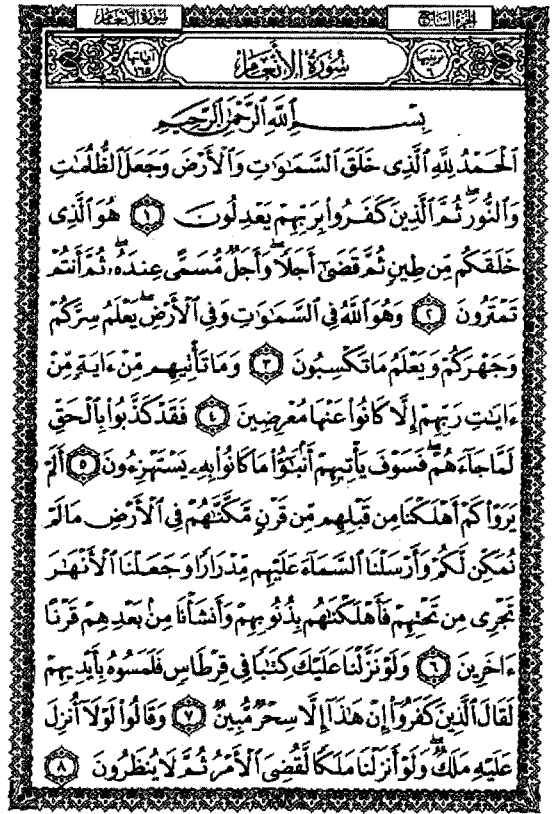 سُورَةُ الأَنْعَامِ
الجُزْءُ السَّابِعُ
ترتيبها ٦
سُورَةُ الأَنْعَامِ
آياتها ١٦٥
بِسْمِ اللَّهِ الرَّحْمَٰنِ الرَّحِيمِ
الْحَمْدُ لِلَّهِ الَّذِى خَلَقَ السَّمَٰوَٰتِ وَالْأَرْضَ وَجَعَلَ الظُّلُمَٰتِ
وَالنُّورَ ۖ ثُمَّ الَّذِينَ كَفَرُوا۟ بِرَبِّهِمْ يَعْدِلُونَ ١ هُوَ الَّذِى
خَلَقَكُم مِّن طِينٍ ثُمَّ قَضَىٰٓ أَجَلًا ۖ وَأَجَلٌ مُّسَمًّى عِندَهُۥ ۖ ثُمَّ أَنتُمْ
تَمْتَرُونَ ٢ وَهُوَ اللَّهُ فِى السَّمَٰوَٰتِ وَفِى الْأَرْضِ ۖ يَعْلَمُ سِرَّكُمْ
وَجَهْرَكُمْ وَيَعْلَمُ مَا تَكْسِبُونَ ٣ وَمَا تَأْتِيهِم مِّنْ ءَايَةٍ مِّنْ
ءَايَٰتِ رَبِّهِمْ إِلَّا كَانُوا۟ عَنْهَا مُعْرِضِينَ ٤ فَقَدْ كَذَّبُوا۟ بِالْحَقِّ
لَمَّا جَآءَهُمْ ۖ فَسَوْفَ يَأْتِيهِمْ أَنۢبَٰٓؤُا۟ مَا كَانُوا۟ بِهِۦ يَسْتَهْزِءُونَ ٥ أَلَمْ
يَرَوْا۟ كَمْ أَهْلَكْنَا مِن قَبْلِهِم مِّن قَرْنٍ مَّكَّنَّٰهُمْ فِى الْأَرْضِ مَا لَمْ
نُمَكِّن لَّكُمْ وَأَرْسَلْنَا السَّمَآءَ عَلَيْهِم مِّدْرَارًا وَجَعَلْنَا الْأَنْهَٰرَ
تَجْرِى مِن تَحْتِهِمْ فَأَهْلَكْنَٰهُم بِذُنُوبِهِمْ وَأَنشَأْنَا مِنۢ بَعْدِهِمْ قَرْنًا
ءَاخَرِينَ ٦ وَلَوْ نَزَّلْنَا عَلَيْكَ كِتَٰبًا فِى قِرْطَاسٍ فَلَمَسُوهُ بِأَيْدِيهِمْ
لَقَالَ الَّذِينَ كَفَرُوٓا۟ إِنْ هَٰذَآ إِلَّا سِحْرٌ مُّبِينٌ ٧ وَقَالُوا۟ لَوْلَآ أُنزِلَ
عَلَيْهِ مَلَكٌ ۖ وَلَوْ أَنزَلْنَا مَلَكًا لَّقُضِىَ الْأَمْرُ ثُمَّ لَا يُنظَرُونَ ٨